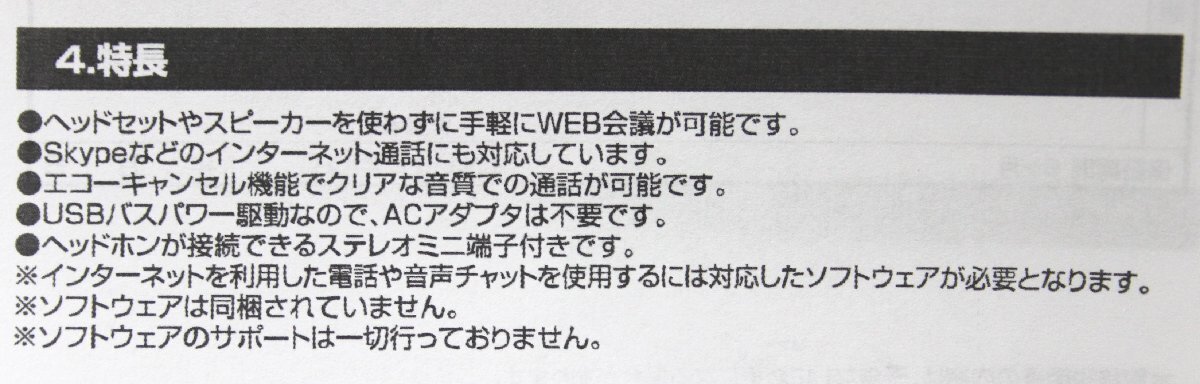 4.特長
●ヘッドセットやスピーカーを使わずに手軽にWEB会議が可能です。
●Skypeなどのインターネット通話にも対応しています。
●エコーキャンセル機能でクリアな音質での通話が可能です。
●USBバスパワー駆動なので、ACアダプタは不要です。
●ヘッドホンが接続できるステレオミニ端子付きです。
※インターネットを利用した電話や音声チャットを使用するには対応したソフトウェアが必要となります。
※ソフトウェアは同梱されていません。
※ソフトウェアのサポートは一切行っておりません。